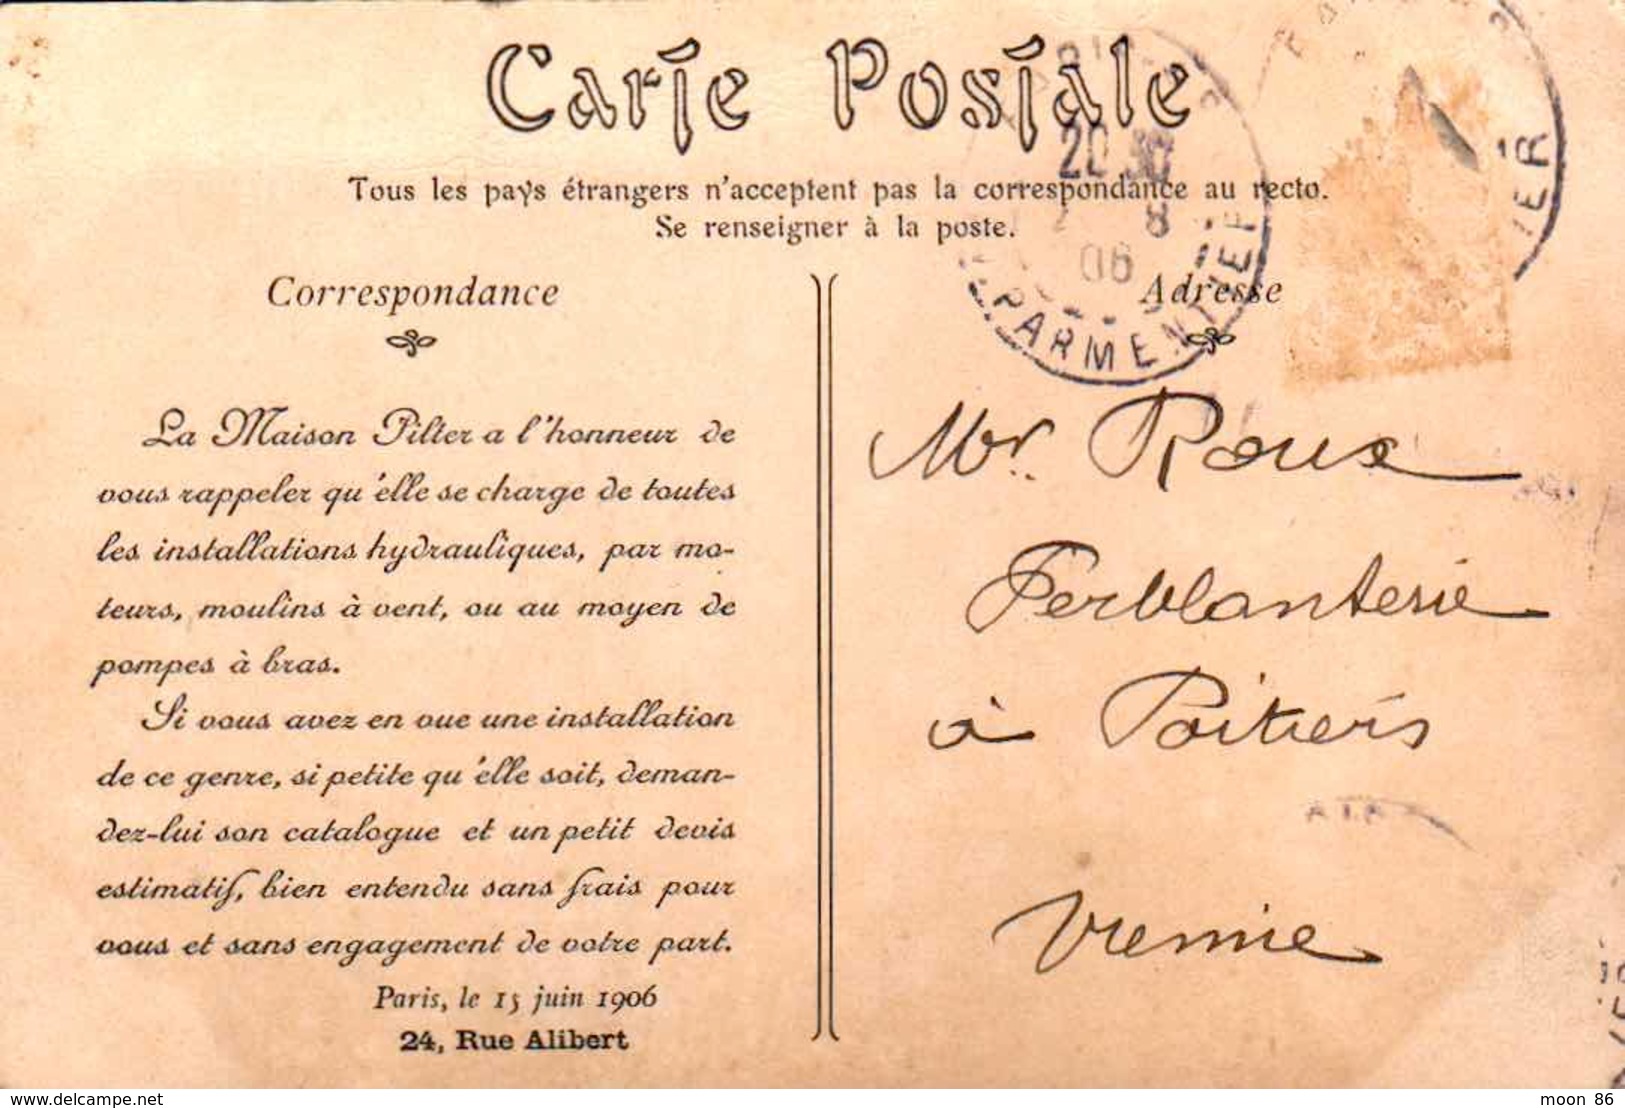 Carte Postale
Tous les pays étrangers n'acceptent pas la correspondance au recto.
Se renseigner à la poste.
20 30
8
06
PARMENTIER
IER
Correspondance
La Maison Pilter a l'honneur de
vous rappeler qu'elle se charge de toutes
les installations hydrauliques, par mo-
teurs, moulins à vent, ou au moyen de
pompes à bras.
Si vous avez en vue une installation
de ce genre, si petite qu'elle soit, deman-
dez-lui son catalogue et un petit devis
estimatif, bien entendu sans frais pour
vous et sans engagement de votre part.
Paris, le 15 juin 1906
24, Rue Alibert
Adresse
Mr. Roux
Ferblanterie
à Poitiers
Vienne
www.delcampe.net
moon 86